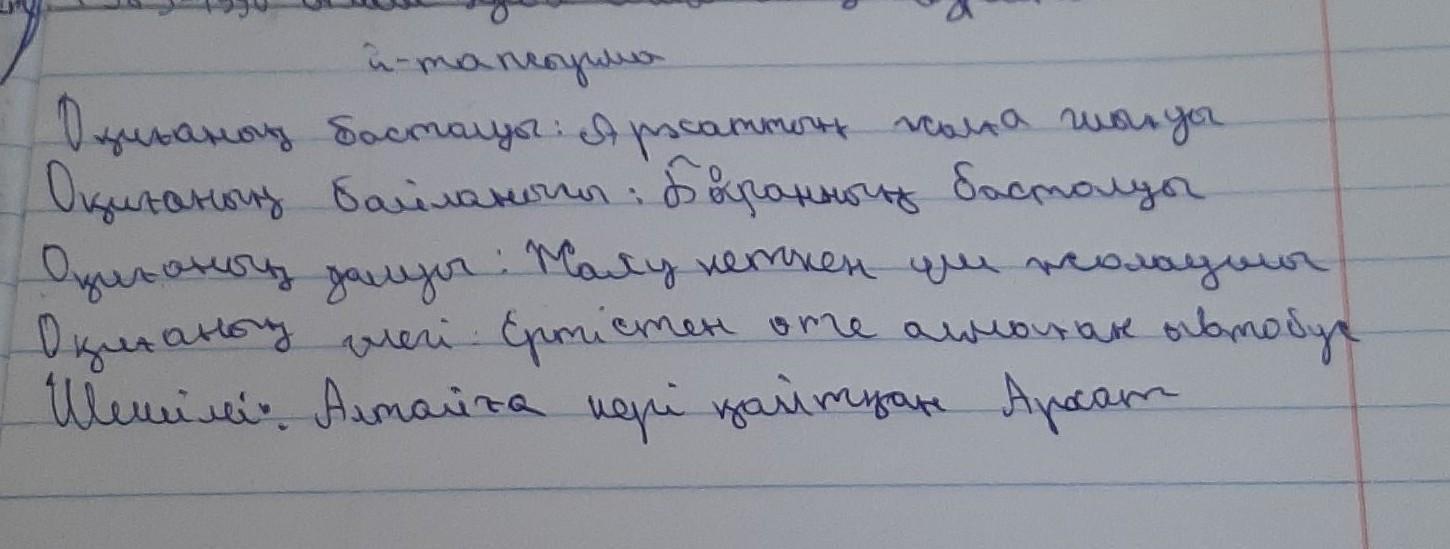 й-тапсырма
Оқиғаның басталуы: Арсаттың жолға шығуы
Оқиғаның байланысы: Боранның басталуы
Оқиғаның дамуы: кеткен үш жолаушы
Оқиғаның шегі: Ертістен өте алмаған автобус
Шешімі: Алтайға кері қайтқан Арсат